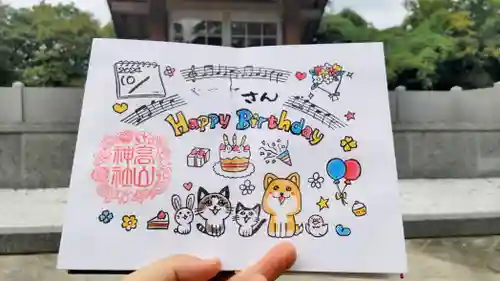 10
さん
Happy Birthday
高山
神社